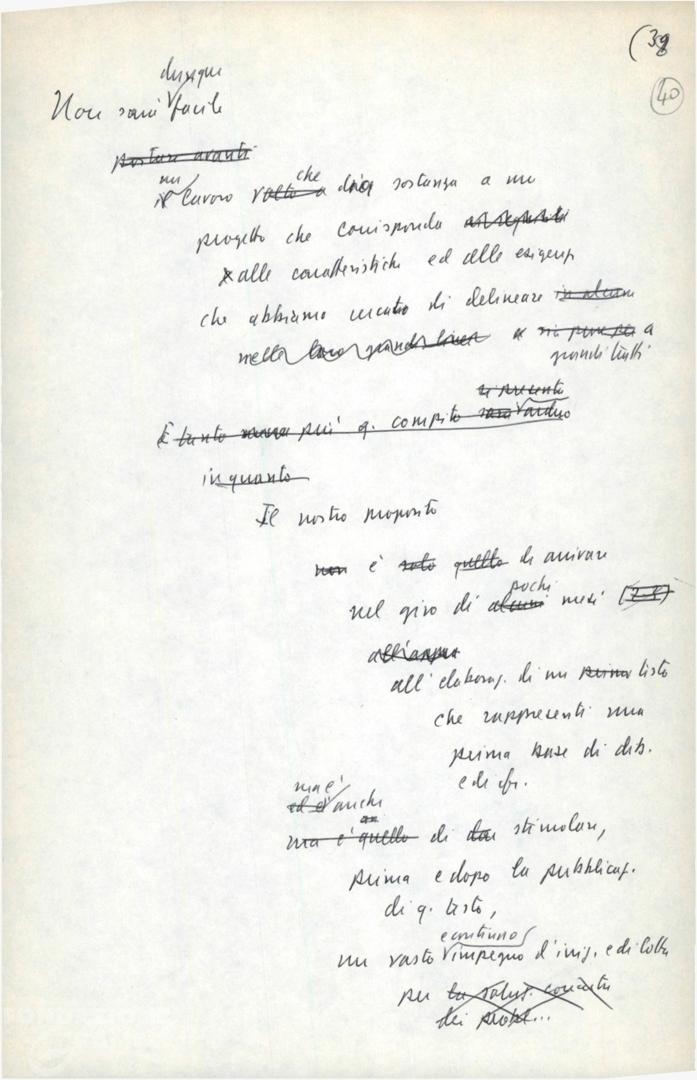 (39
40
dunque
Non sarà facile
portare avanti
un
il lavoro volto a che dia sostanza a un
progetto che corrisponda
alle caratteristiche ed alle esigenze
che abbiamo cercato di delineare in alcuni
nelle loro grandi linee a
grandi tratti
si presenta
È tanto più q. compito sarà arduo
in quanto
Il nostro proposito
non è solo quello di arrivare
pochi
nel giro di alcuni mesi
all'elaboraz. di un primo testo
che rappresenti una
prima base di dib.
e di cfr.
ma è
ed è anche
ma è quello di stimolare,
prima e dopo la pubblicaz.
di q. testo,
e continuo
un vasto impegno d'iniz. e di lotta
per la soluz. concreta
dei probl...